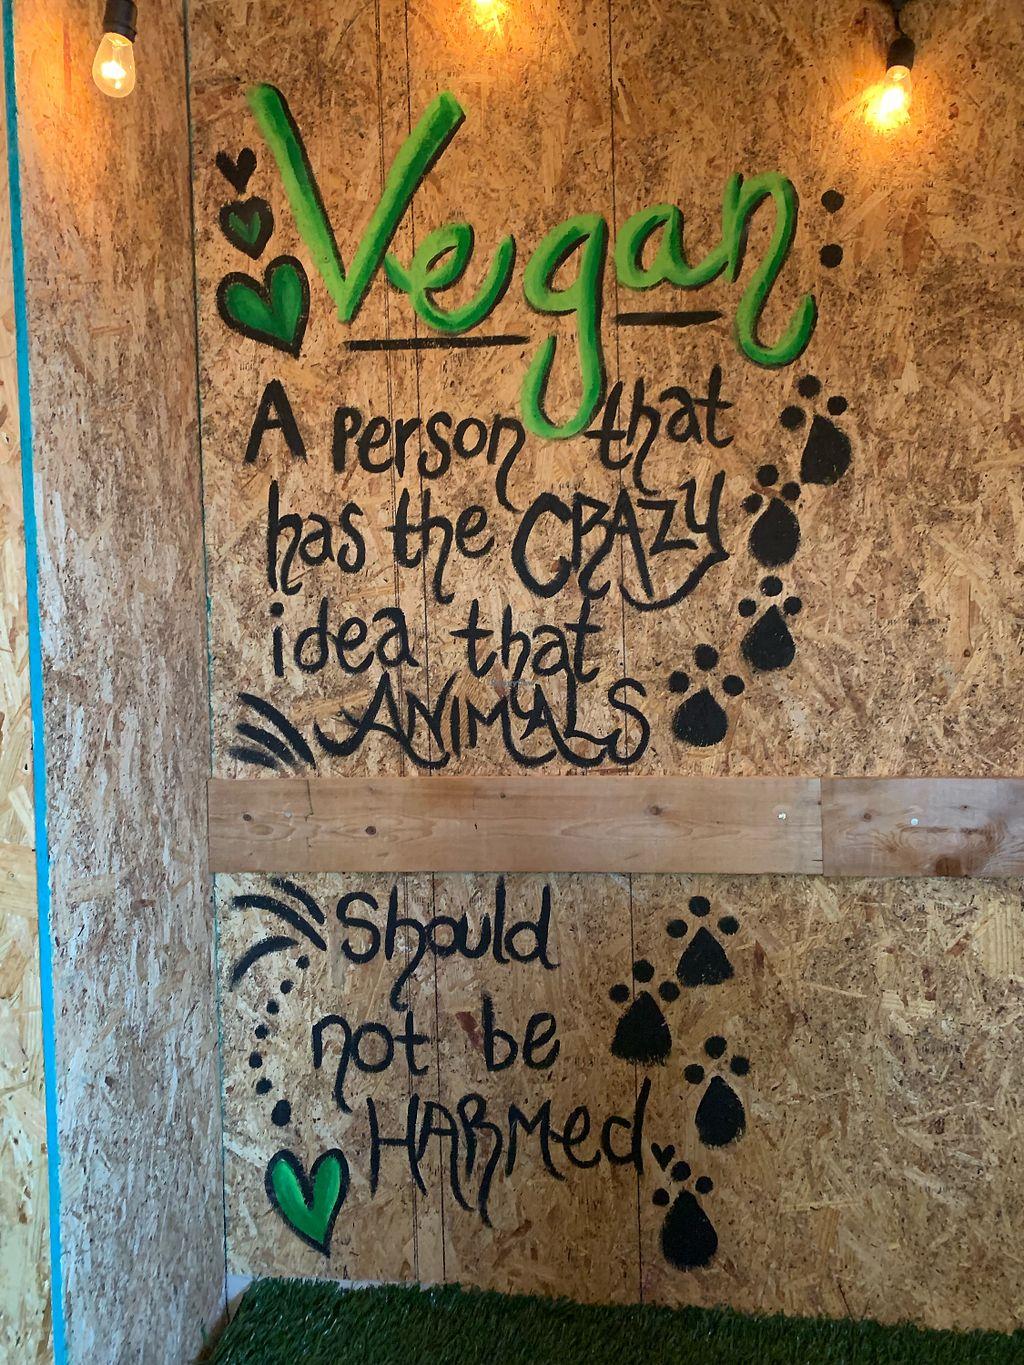 Vegan:
A person that
has the CRAZY
idea that
ANIMALS
Should
not be
HARMed